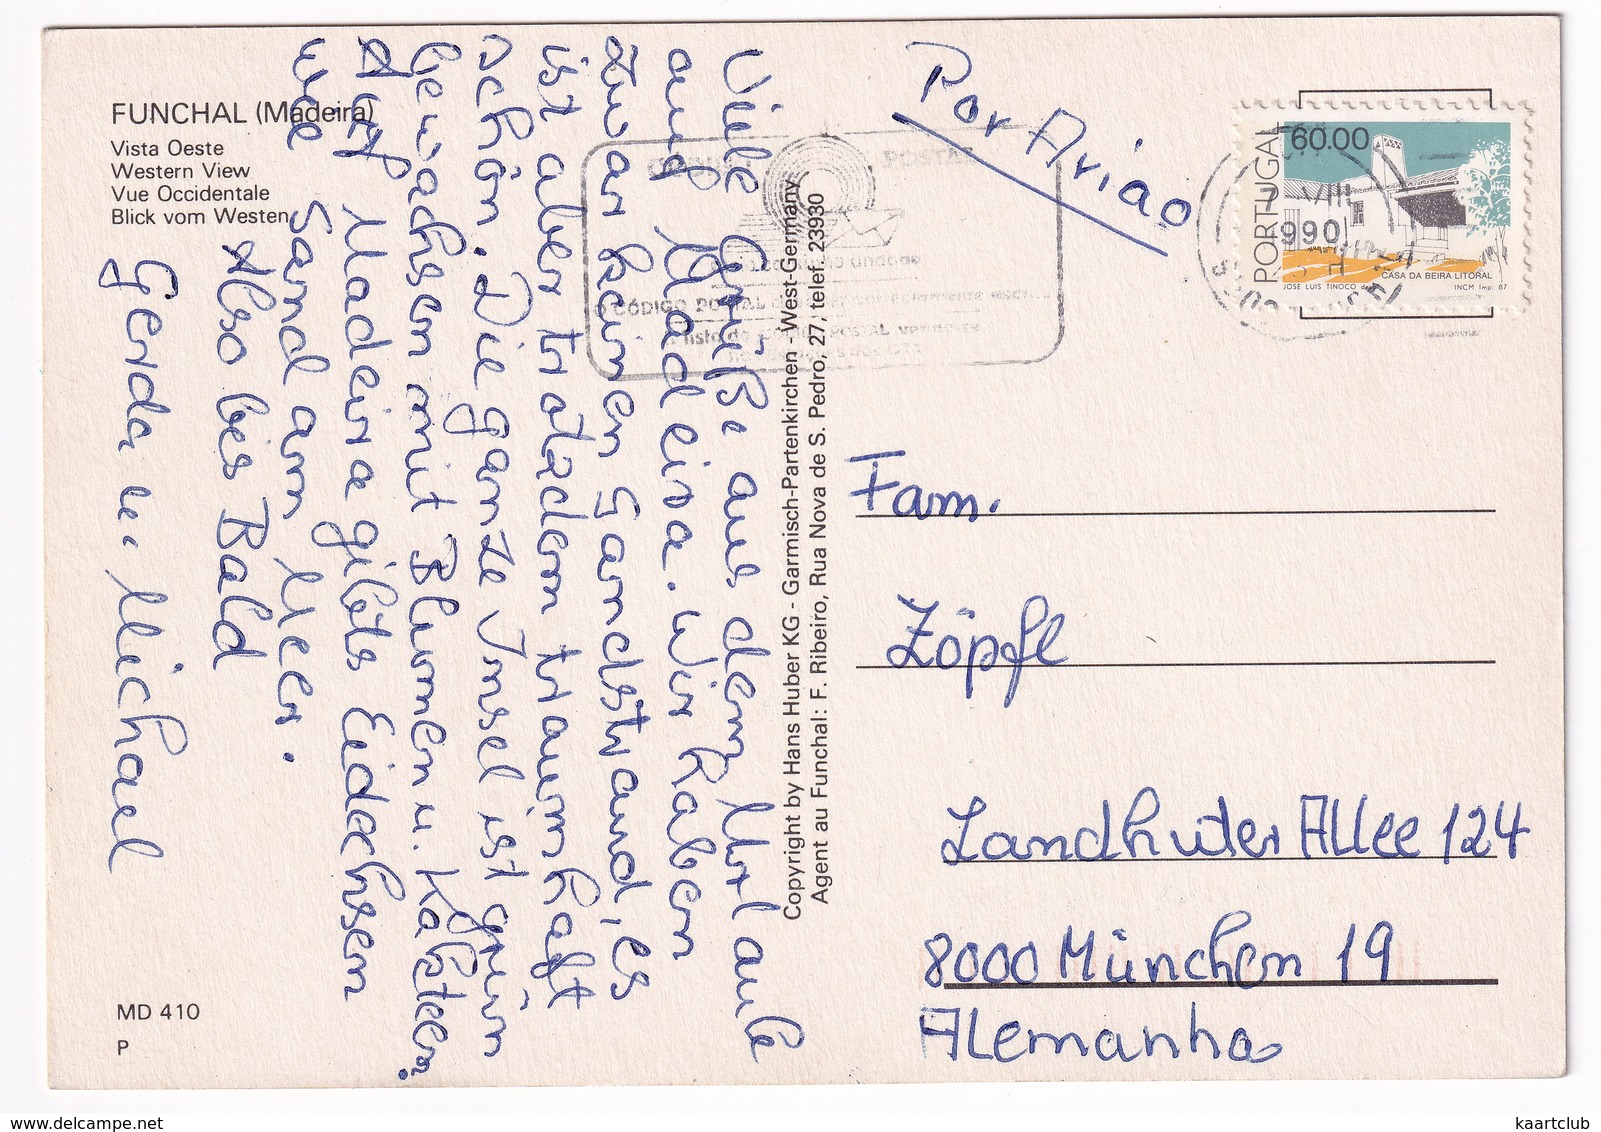 FUNCHAL (Madeira)
Vista Oeste
Western View
Vue Occidentale
Blick vom Westen
Viele Grüße aus dem Urlaub
auf Madeira. Wir haben
zwar keinen Sandstrand, es
ist aber trotzdem traumhaft
schön. Die ganze Insel ist grün
bewachsen mit Blumen u. Kakteen.
Auf Madeira gibts Eidechsen
wie Sand am Meer.
Also bis Bald
Gerda u. Michael
MD 410
P
Copyright by Hans Huber KG - Garmisch-Partenkirchen - West-Germany
Agent au Funchal: F. Ribeiro, Rua Nova de S. Pedro, 27, telef. 23930
Por Aviao
POSTAL
CÓDIGO POSTAL
PORTUGAL
60.00
CASA DA BEIRA LITORAL
JOSÉ LUIS TINOCO
INCM Imp. 87
7 VIII
990
Fam.
Zöpfl
Landhuter Allee 124
8000 München 19
Alemanha
kaartclub